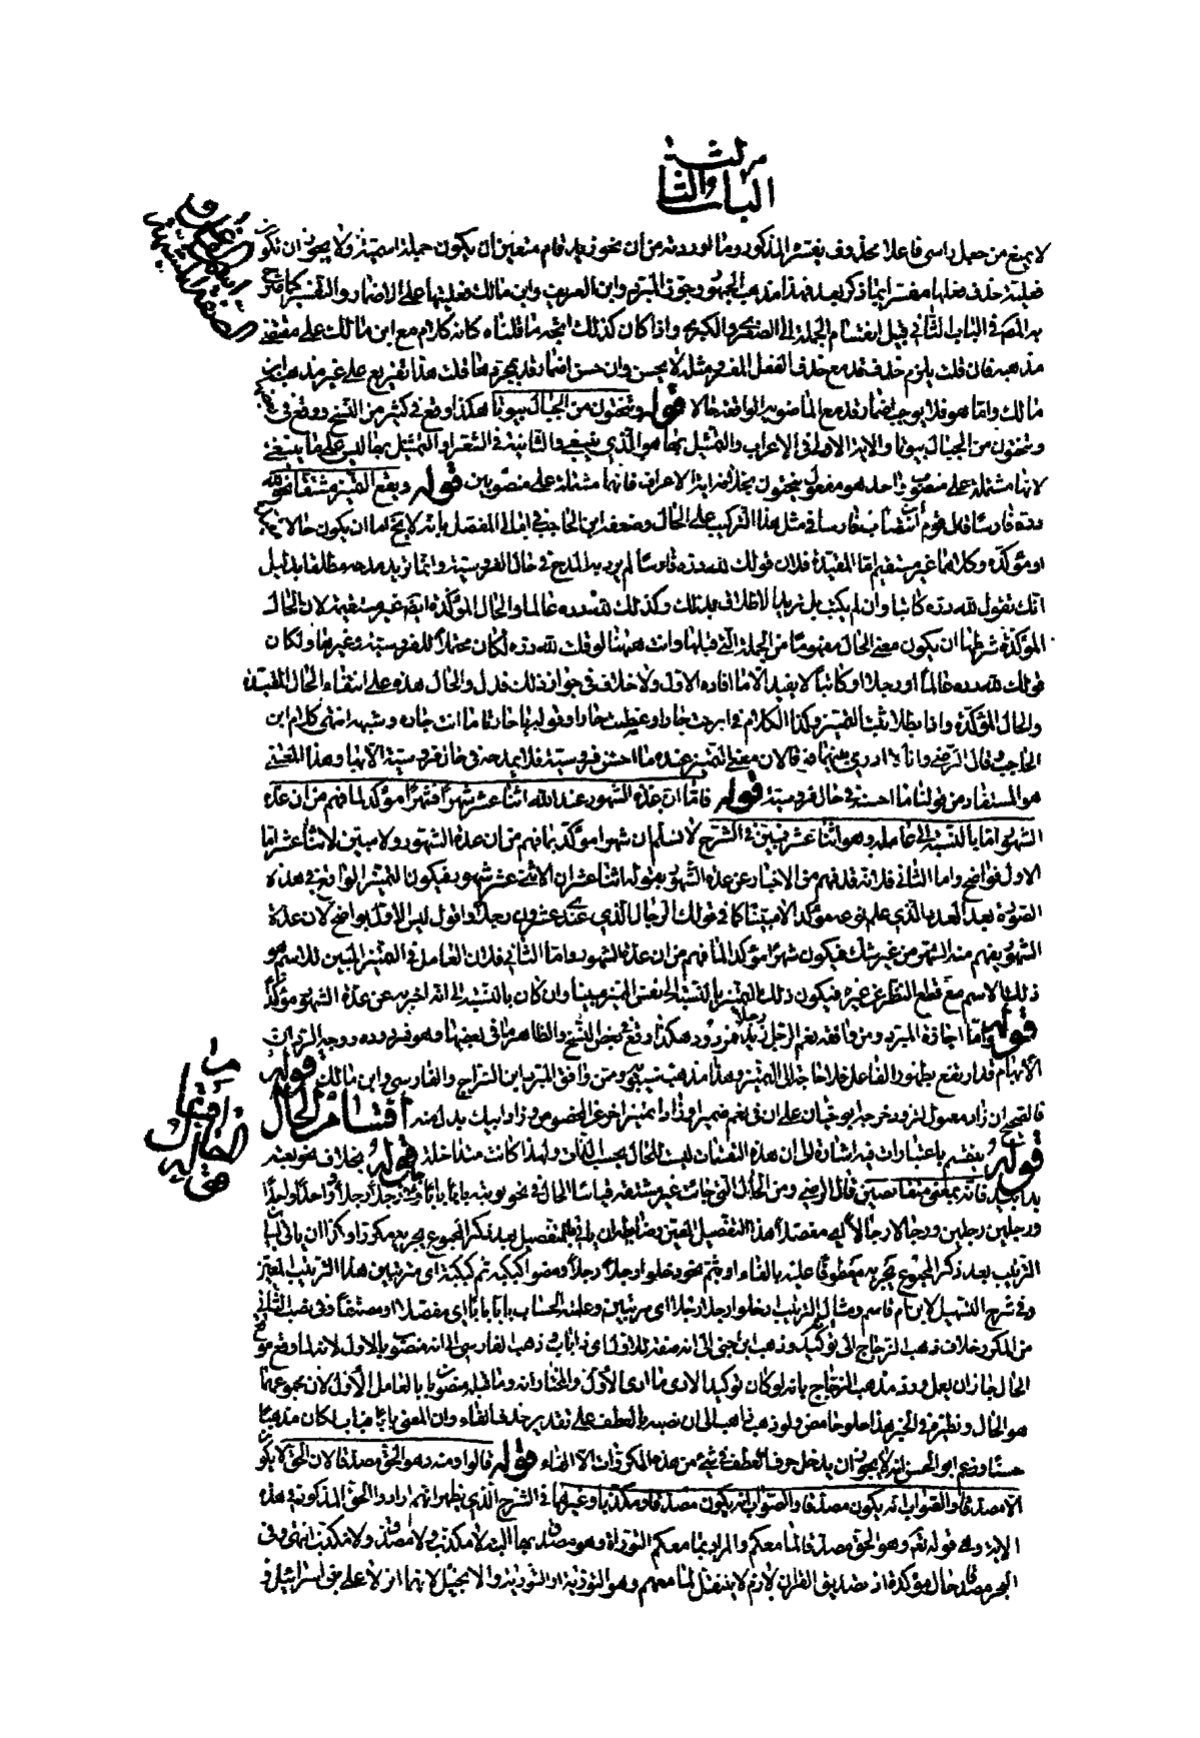 من الباب والثالث
لا يمنع من جعل اسمي فاعلا بمحذوف يفسره المذكور وما اورده من ان نحو زيد قام متعين ان يكون جملة اسمية ولا يجوز ان تكون
فعلية حذف فعلها مفسرا بما ذكر بعد فهذا مذهب الجمهور وجوز المبرد وابن العريف وابن مالك فعليتها على الاضمار والتفسير كما صرح
به المص في الباب الثاني قبيل انقسام الجملة الى الصغرى والكبرى واذا كان كذلك اتجه ما قلناه كانه كلام مع ابن مالك على مقتضى
مذهبه فان قلت يلزم حذف قد مع حذف الفعل ومثله لا يحسن وان حسن اضمار قد قلت هذا تفريع على غير مذهب ابن
مالك واما هو فلا يوجب اضمار قد مع الماضوية الواقعة حالا قوله وتنحتون من الجبال بيوتا هكذا وقع في كثير من النسخ ووقع في بعضها
وتنحتون من الجبال بيوتا والاية الاولى في الاعراف والتمثيل بها هو الذي ينبغي والثانية في الشعراء والتمثيل بها ليس على ما ينبغي
لانها مشتملة على منصوب واحد هو مفعول تنحتون بخلاف اية الاعراف فانها مشتملة على منصوبين قوله ويقع التمييز مشتقا نحو لله
دره فارسا قال قوم انتصاب فارسا في مثل هذا التركيب على الحال وضعفه ابن الحاجب في امالي المفصل بانه لا يخلو اما ان يكون حالا مقيدة
او مؤكدة وكلاهما غير مستقيم اما المقيدة فلان قولك لله دره فارسا لم يرد به المدح في حال الفروسية وانما تريد مدحه مطلقا بدليل
انك تقول لله دره كاتبا وان لم يكتب بل تريد الاطلاق بذلك وكذلك لله دره عالما والحال المؤكدة ايضا غير مستقيمة لان الحال
المؤكدة شرطها ان يكون معنى الحال مفهوما من الجملة التي قبلها وانت ههنا لو قلت لله دره لكان محتملا للفروسية وغيرها ولكان
قولك لله دره عالما او رجلا او كاتبا لا يفيد الا ما افاده الاول ولا خلاف في جواز ذلك فدل والحال هذه على انتفاء الحال المقيدة
والحال المؤكدة واذا بطلا ثبت التمييز وكذا الكلام في ابرحت جارا وعظمت جارا وقوله يا جارتا ما انت جاره وشبهه انتهى كلام ابن
الحاجب وقال الرضي وانا لا ادري بينهما فرقا لان معنى التمييز عنده ما احسن فروسيته فلا يمدحه في حال غير فروسيته الا بها وهذا المعنى
هو المستفاد من قولنا ما احسنه في حال فروسيته قوله فاما ان عدة الشهور عند الله اثنا عشر شهرا فشهرا مؤكد لما فهم من ان عدة
الشهور واما بالنسبة الى عامله وهو اثنا عشر فمبين في الشرح لا نسلم ان شهرا مؤكد بما فهم من ان عدة الشهور ولا مبين لاثنا عشر اما
الاول فواضح واما الثاني فلانه قد فهم من الاخبار عن عدة الشهور بقوله اثنا عشر ان الاثني عشر شهور فيكون التمييز الواقع في هذه
الصورة بعد العدد الذي علم نوعه مؤكدا لا مبينا كما في قولك الرجال الذي عندي عشرون رجلا واقول ليس الاول بواضح لان عدة
الشهور يفهم منه الشهر من غير شك فيكون شهرا مؤكدا لما فهم من ان عدة الشهور واما الثاني فلان العامل في التمييز المبين للاسم هو
ذلك الاسم مع قطع النظر عن غيره فيكون ذلك التمييز بالنسبة الى نفس المميز مبينا وان كان بالنسبة الى انه اخبر به عن عدة الشهور مؤكدا
قوله واما اجازة المبرد ومن وافقه نعم الرجل رجلا زيد فمردود هكذا وقع في بعض النسخ والظاهر ما في بعضها وهو فمردودة ووجه الرد ان
الابهام قد ارتفع بظهور الفاعل فلا حاجة الى التمييز وهذا مذهب سيبويه وممن وافق المبرد ابن السراج والفارسي وابن مالك قوله
فالصحيح ان زاد معمول لتزود خرجه ابو حيان على ان في نعم ضميرا وزادا تمييز اخر عن المخصوص وزاد ابيك بدل منه اقسام الحال
قوله ينقسم باعتبارات فيه اشارة الى ان هذه التقسيمات ليست للحال بحسب الذات ولهذا كانت متداخلة قوله بخلاف نحو بعته
يدا بيد فانه بمعنى متقابضين قال الرضي ومن الحال التي جاءت غير مشتقة قياسا الحال في نحو بوبته بابا بابا وجاؤني رجلا رجلا وواحدا واحدا
ورجلين رجلين ورجالا رجالا اي مفصلا هذا التفصيل المعين وضابطه ان ياتي للتفصيل بعد ذكر المجموع بجزئيه مكررا وكذا ان ياتي لبيان
الترتيب بعد ذكر المجموع بجزئه معطوفا عليه بالفاء او بثم نحو دخلوا رجلا فرجلا ومضوا كبكبة ثم كبكبة اي مترتبين هذا الترتيب المعين
وفي شرح التسهيل لابن ام قاسم ومثال الترتيب ادخلوا رجلا رجلا اي مرتبين وعلمته الحساب بابا بابا اي مفصلا او مصنفا وفي نصب الثاني
من المكرر خلاف ذهب الزجاج الى انه توكيد وذهب ابن جني الى انه صفة للاول اي ذا باب وذهب الفارسي الى انه منصوب بالاول لانه لما وقع موقع
الحال جاز ان يعمل ورد مذهب الزجاج بانه لو كان توكيدا لادى ما ادى الاول والمختار انه وما قبله منصوبا بالعامل الاول لان مجموعهما
هو الحال ونظيره في الخبر هذا حلو حامض ولو ذهب ذاهب الى ان نصبه بالعطف على تقدير حذف الفاء وان المعنى بابا فبابا لكان مذهبا
حسنا وزعم ابو الحسن انه لا يجوز ان يدخل حرف العطف في شيء من هذه المكررات الا الفاء قوله قالوا ومنه وهو الحق مصدقا لان الحق لا يكون
الا مصدقا والصواب انه يكون مصدقا ومكذبا وغيرهما في الشرح الذي يظهر انهم ارادوا الحق المذكور في هذه
الاية وهي قوله تعالى وهو الحق مصدقا لما معكم والمراد بما معكم التوراة وهو مصدق بها البتة لا مكذب ولا مصدق ولا مكذب انتهى وفي
البحر مصدقا حال مؤكدة اذ تصديق القران لازم لا ينتقل لما معهم وهو التورية او التورية والانجيل لانهما انزلا على بني اسرائيل و